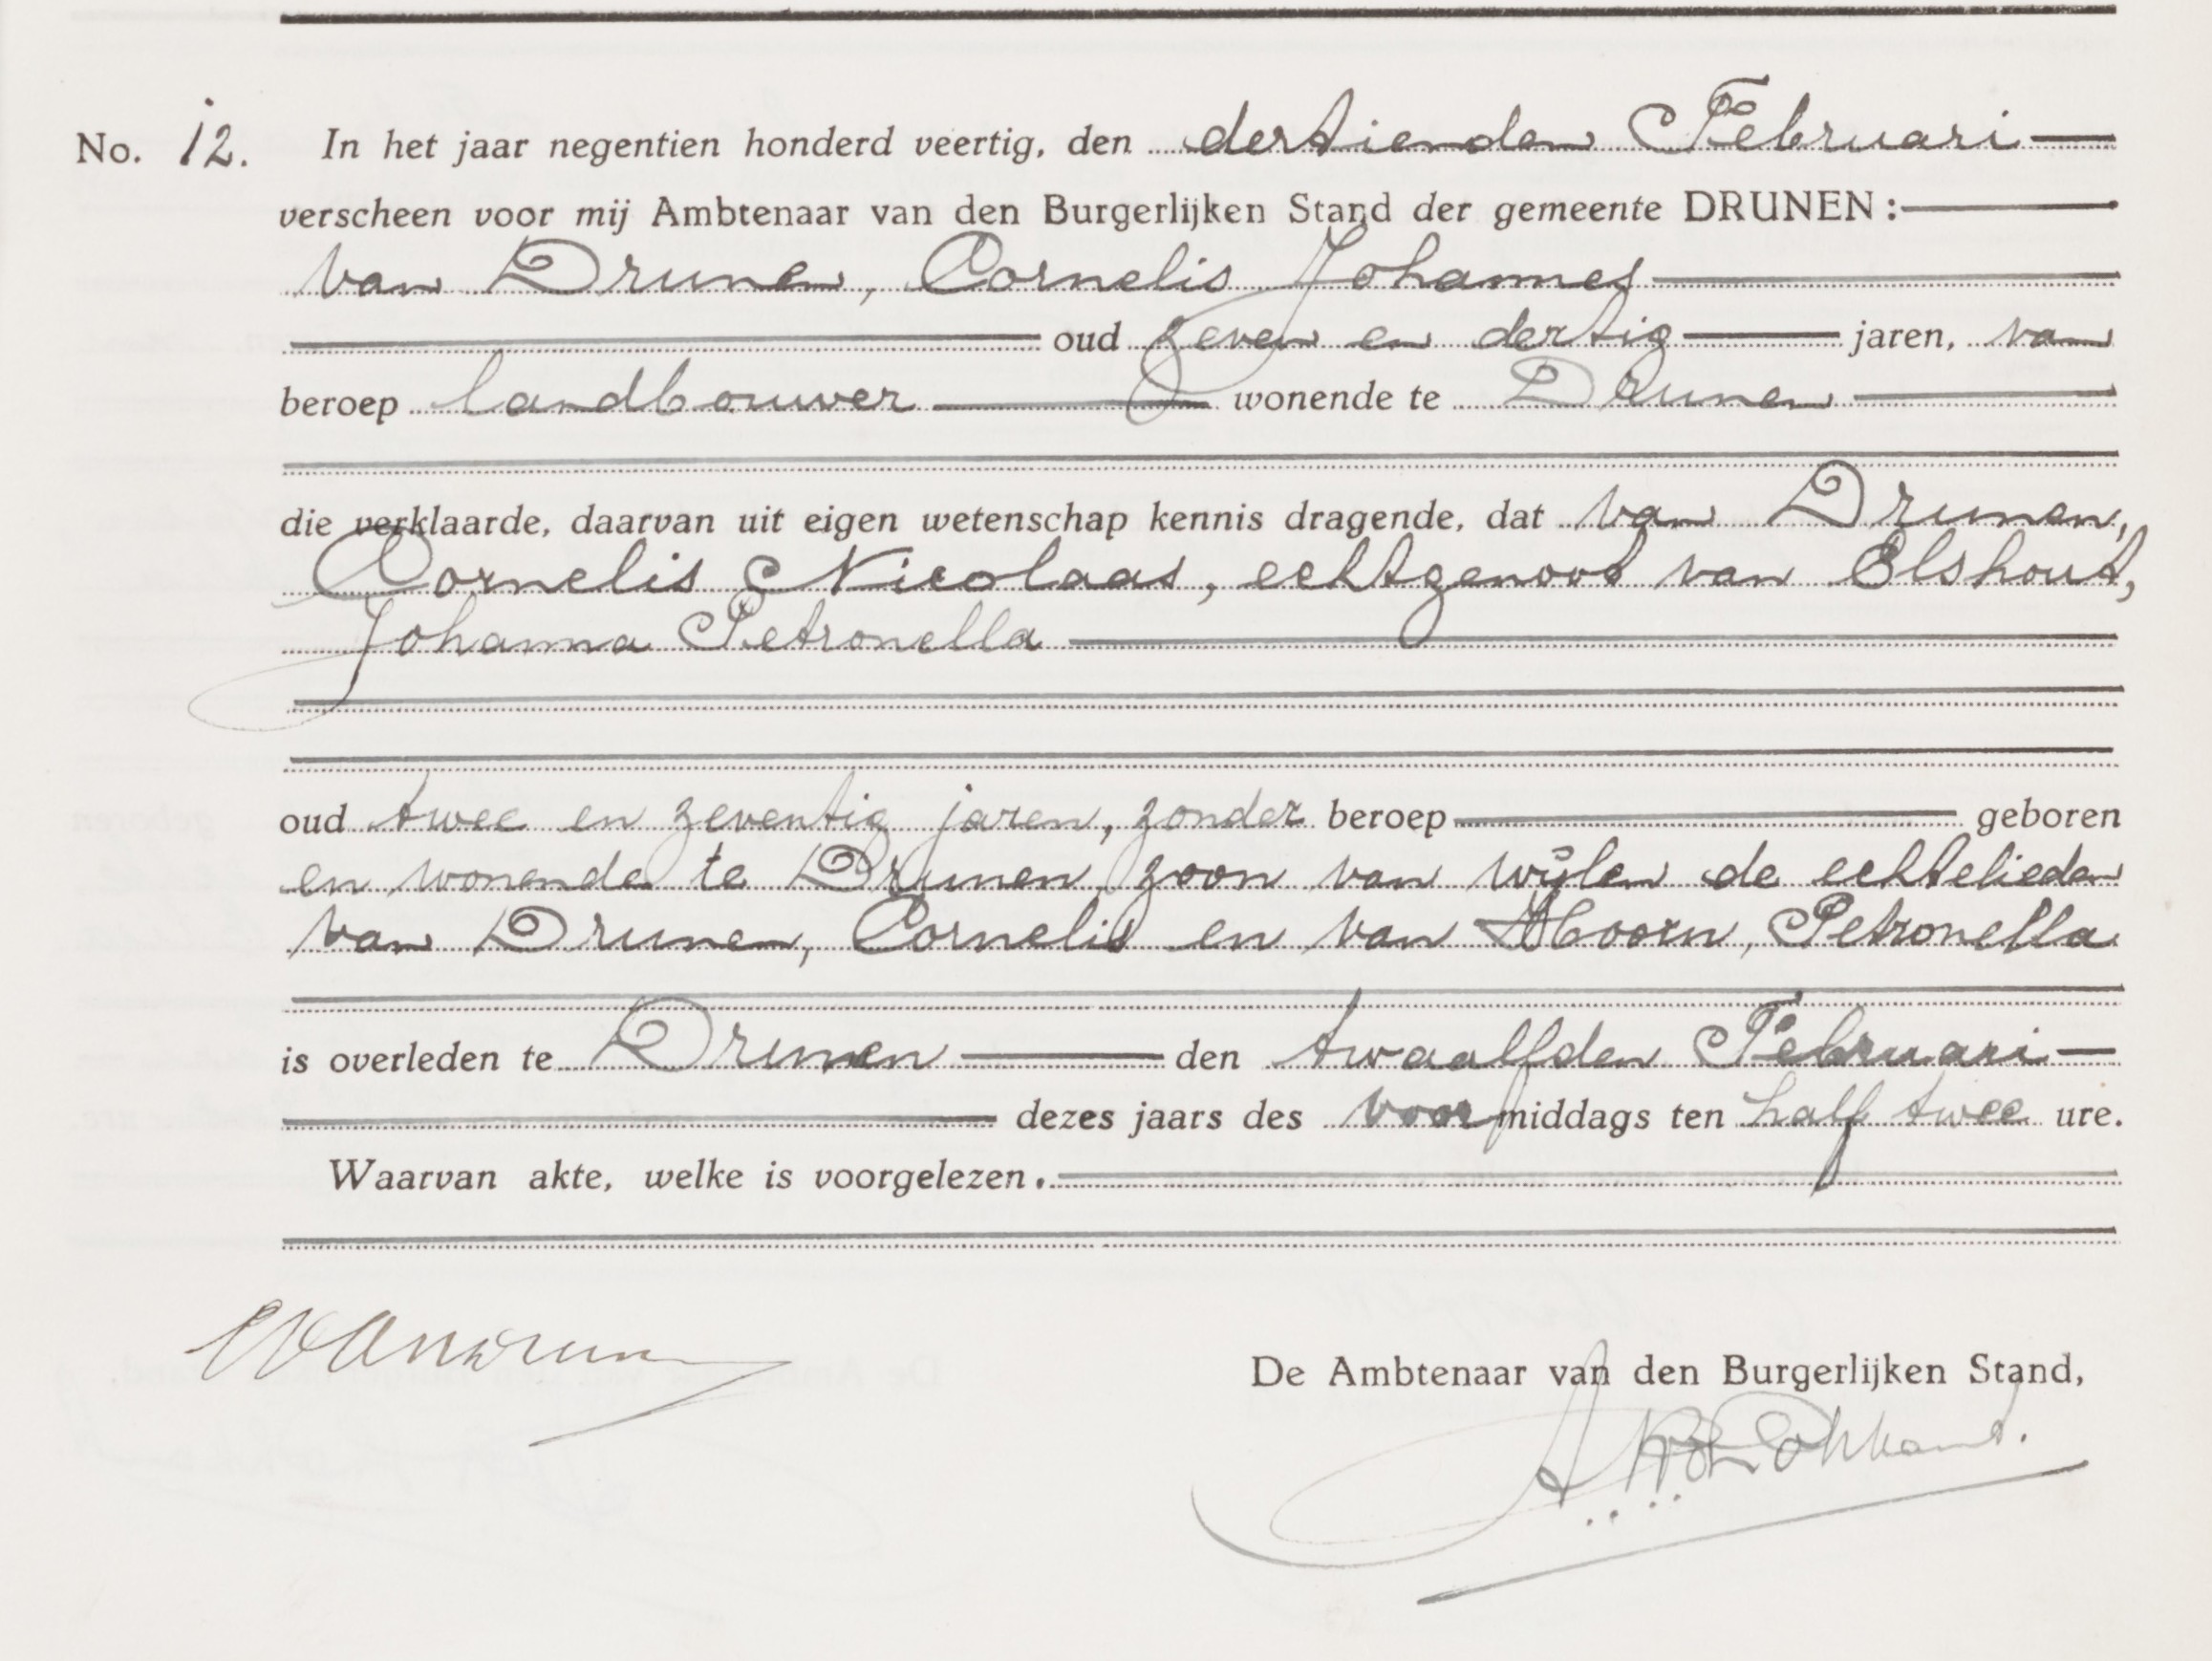 No. 12. In het jaar negentien honderd veertig, den dertienden Februari
verscheen voor mij Ambtenaar van den Burgerlijken Stand der gemeente DRUNEN:
van Drunen, Cornelis Johannes
oud zeven en dertig jaren, van
beroep landbouwer wonende te Drunen
die verklaarde, daarvan uit eigen wetenschap kennis dragende, dat van Drunen,
Cornelis Nicolaas, echtgenoot van Elshout,
Johanna Petronella
oud twee en zeventig jaren, zonder beroep geboren
en wonende te Drunen, zoon van wijlen de echtelieden
van Drunen, Cornelis en van Hoorn, Petronella
is overleden te Drunen den twaalfden Februari
dezes jaars des voormiddags ten half twee ure.
Waarvan akte, welke is voorgelezen.
De Ambtenaar van den Burgerlijken Stand,